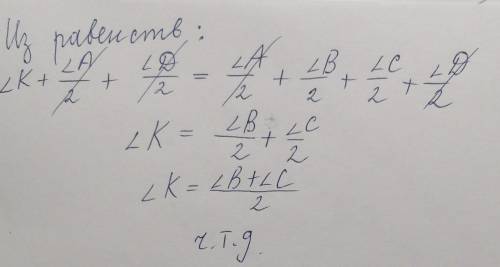 Из равенств:
∠K + ∠A/2 + ∠D/2 = ∠A/2 + ∠B/2 + ∠C/2 + ∠D/2
∠K = ∠B/2 + ∠C/2
∠K = ∠B+∠C/2
ч.т.д.